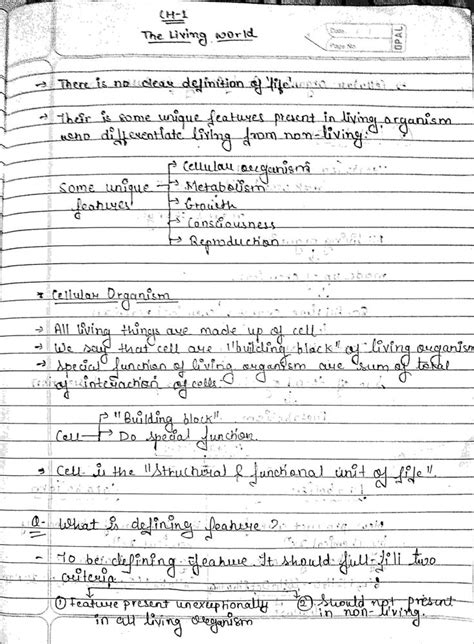 CH-1
The Living World
Date
Page No.
OPAL
→ There is no clear definition of 'life'.
→ Their is some unique features present in living organism
who differentiate living from non-living.
→ Cellular organism
Some unique → Metabolism
features → Growth
→ Consciousness
→ Reproduction
* Cellular Organism
→ All living things are made up of cell.
→ We say that cell are "building block" of living organism
→ special function of living organism are sum of total
of interaction of cells.
→ "Building block".
Cell → Do special function.
→ Cell is the "Structural & functional unit of life".
Q- What is defining feature?
- To be defining feature It should full-fill two
criteria
① Feature present unexeptionally ② Should not present
in all living organism in non-living.